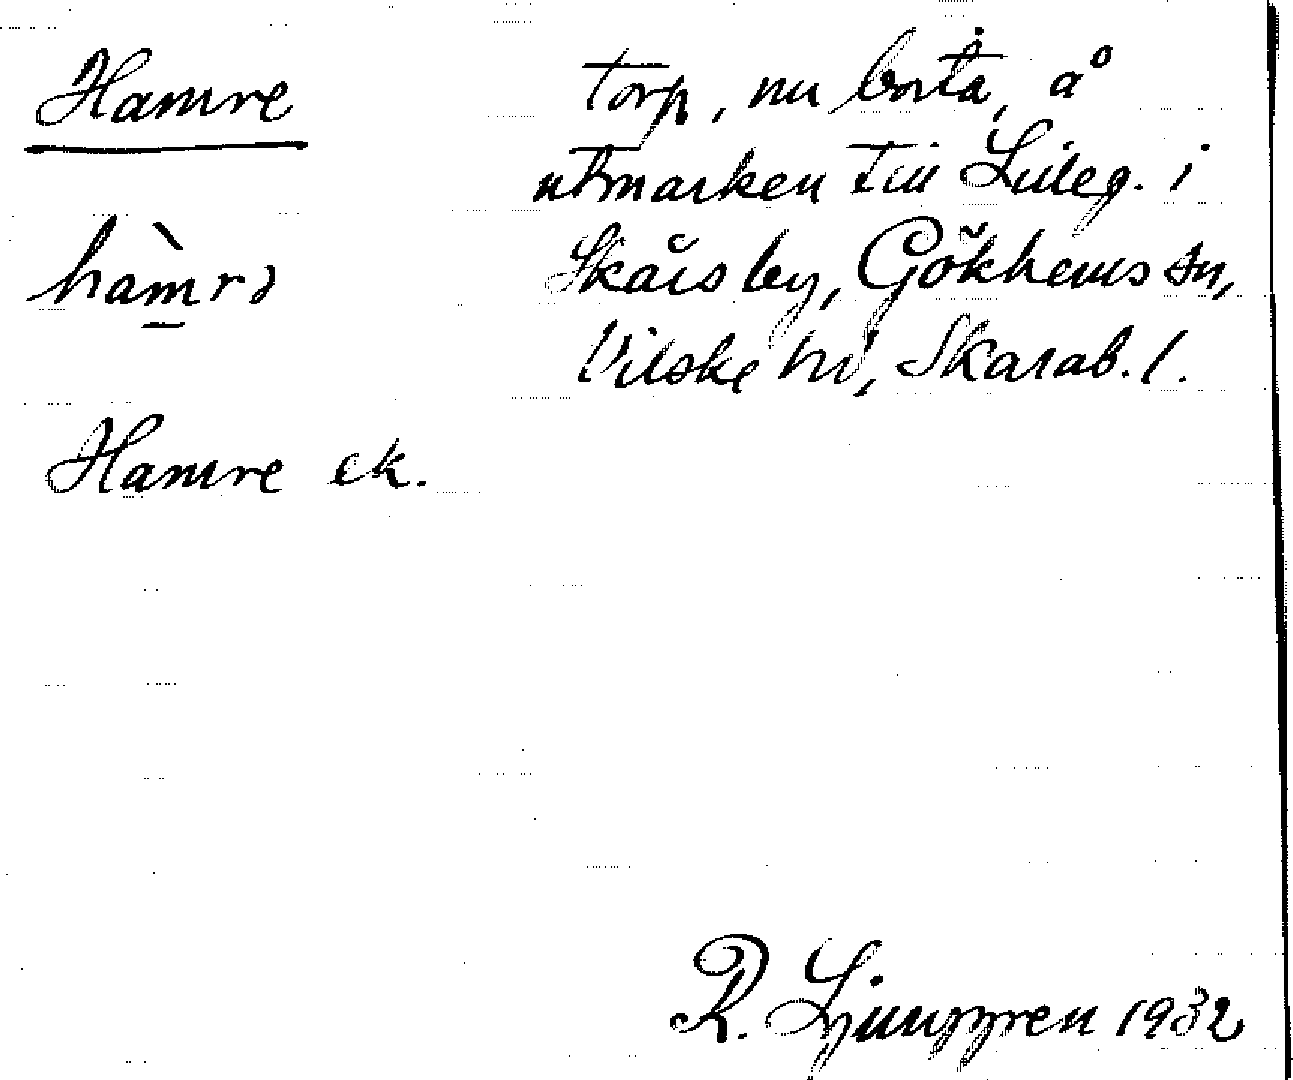 Hamre
torp, nu borta, å
utmarken till Lilleg. i
Skårs by, Gökhems sn,
Vilske hd, Skarab. l.
hàmrə
Hamre ek.
R. Ljunggren 1932